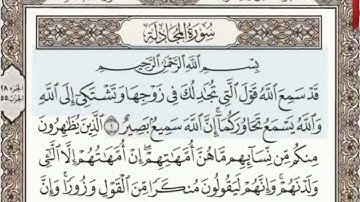 سُورَةُ المُجَادلَةِ
بِسْمِ اللَّهِ الرَّحْمَٰنِ الرَّحِيمِ
قَدْ سَمِعَ اللَّهُ قَوْلَ الَّتِي تُجَادِلُكَ فِي زَوْجِهَا وَتَشْتَكِي إِلَى اللَّهِ
وَاللَّهُ يَسْمَعُ تَحَاوُرَكُمَا إِنَّ اللَّهَ سَمِيعٌ بَصِيرٌ ١ الَّذِينَ يُظَاهِرُونَ
مِنكُم مِّن نِّسَائِهِم مَّا هُنَّ أُمَّهَاتِهِمْ إِنْ أُمَّهَاتُهُمْ إِلَّا الَّٰئِي
وَلَدْنَهُمْ وَإِنَّهُمْ لَيَقُولُونَ مُنكَرًا مِّنَ الْقَوْلِ وَزُورًا وَإِنَّ